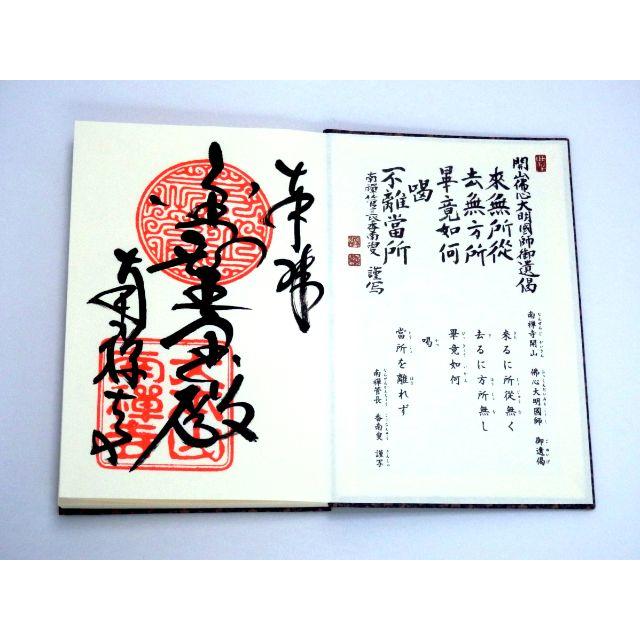 開山佛心大明國師御遺偈
來無所從
去無方所
畢竟如何
喝
不離當所
南禅寺開山 佛心大明國師 御遺偈
来るに所従無く
去るに方所無し
畢竟如何
喝
當所を離れず
南禅管長 香南叟 謹写
奉拝
金剛王宝殿
南禅寺